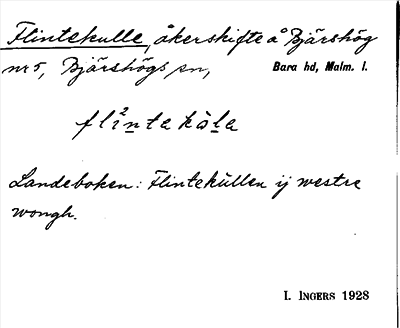 Flintekulle, åkerskifte å Bjärshög
nr 5, Bjärshögs sn, Bara hd, Malm. l.
flintekåla
Landeboken: Flintekullen ij westre
wongh.
I. INGERS 1928